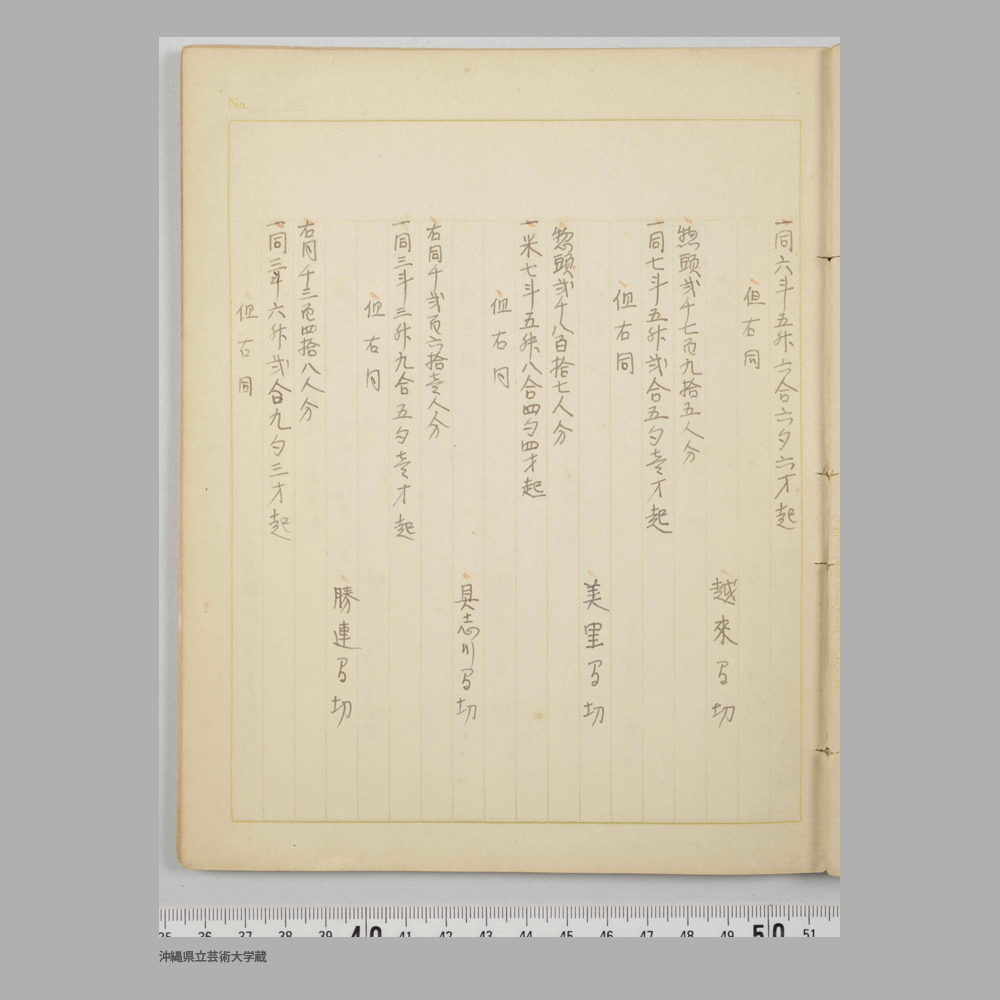 No.
一同六斗五舛六合六夕六才起
但右同
越來間切
惣頭弐千七百九拾五人分
一同七斗五舛弐合五勺壱才起
但右同
美里間切
惣頭弐千八百拾七人分
一米七斗五舛八合四勺四才起
但右同
具志川間切
右同千弐百六拾壱人分
一同三斗三舛九合五勺壱才起
但右同
勝連間切
右同千三百四拾八人分
一同三斗六舛弐合九勺三才起
但右同
35 36 37 38 39 40 41 42 43 44 45 46 47 48 49 50 51
沖縄県立芸術大学蔵